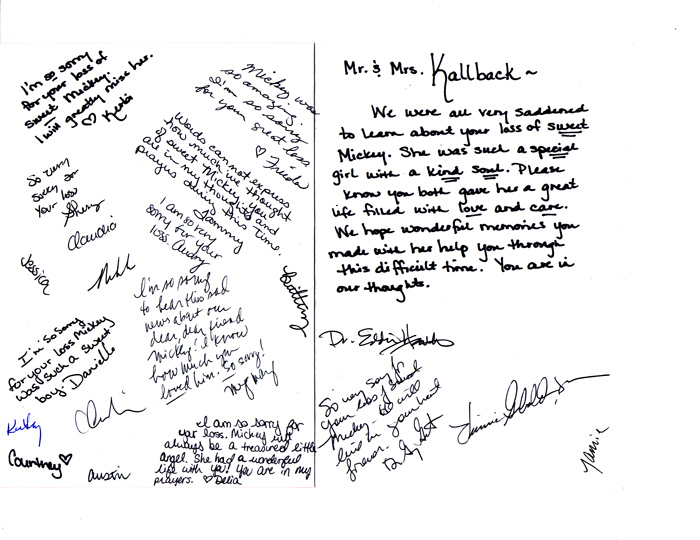 I'm so sorry
for your loss of
sweet Mickey.
I will greatly miss her.
♡ Kerbi
Mickey was
so amazing.
I'm so sorry
for your great loss
♡ Frieda
Words can not express
how much we thought
of sweet Mickey. You
are in my thoughts and
prayers during this time.
Tammy
So very
sorry for
your loss
Sherry
Claudia
Jessica
I am so very
sorry for your
loss. Audry
Brittany
I'm so sorry
to hear this sad
news about our
dear, dear friend
Mickey! I know
how much you
loved him. So sorry!
I'm so sorry
for your loss Mickey
was such a sweet
boy. Danielle
Kathy
Courtney ♡
Austin
I am so sorry for
your loss. Mickey will
always be a treasured little
angel. She had a wonderful
life with ya! You are in my
prayers. ♡ Delia
Mr. & Mrs. Kallback ~
We were all very saddened
to learn about your loss of sweet
Mickey. She was such a special
girl with a kind soul. Please
know you both gave her a great
life filled with love and care.
We hope wonderful memories you
made with her help you through
this difficult time. You are in
our thoughts.
Dr. Eddie
So very sorry for
your loss of
Mickey. will
live in your heart
forever.
Jamie